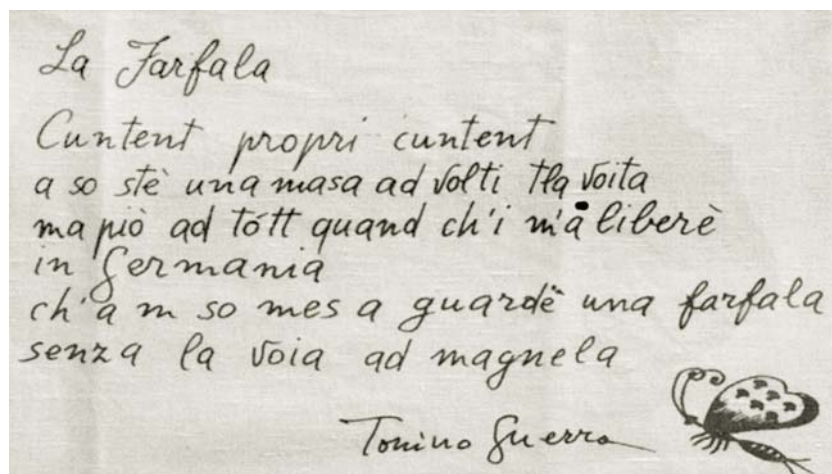 La Farfala
Cuntent propri cuntent
a so stè una masa ad volti tla voita
ma piò ad tótt quand ch'i m'à liberè
in Germania
ch'a m so mes a guardè una farfala
senza la voia ad magnela
Tonino Guerra